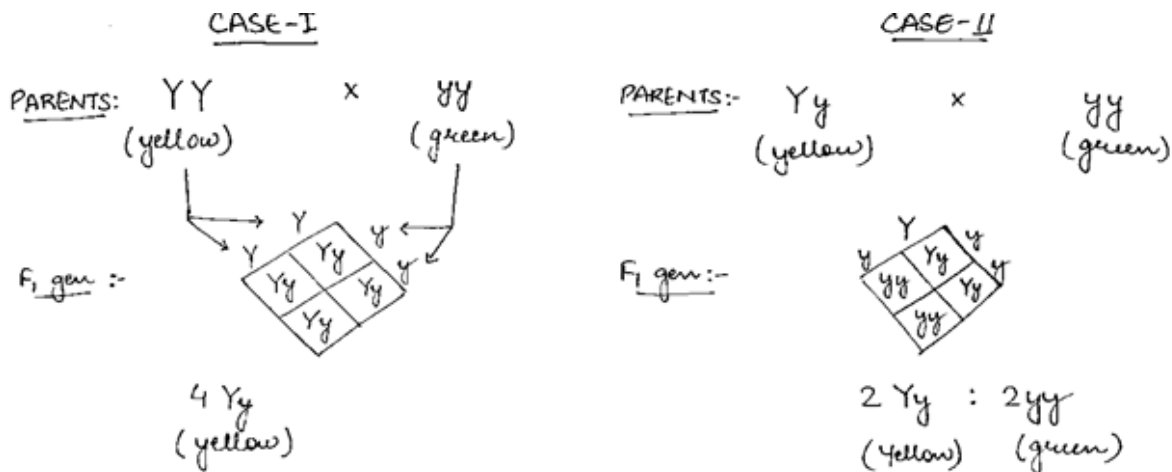 CASE-I
PARENTS: YY x yy
(yellow) (green)
Y y
Y y
Yy
Yy Yy
Yy
F1 gen :-
4 Yy
(yellow)
CASE-II
PARENTS:- Yy x yy
(yellow) (green)
Y y
y y
Yy
yy Yy
yy
F1 gen:-
2 Yy : 2yy
(Yellow) (green)